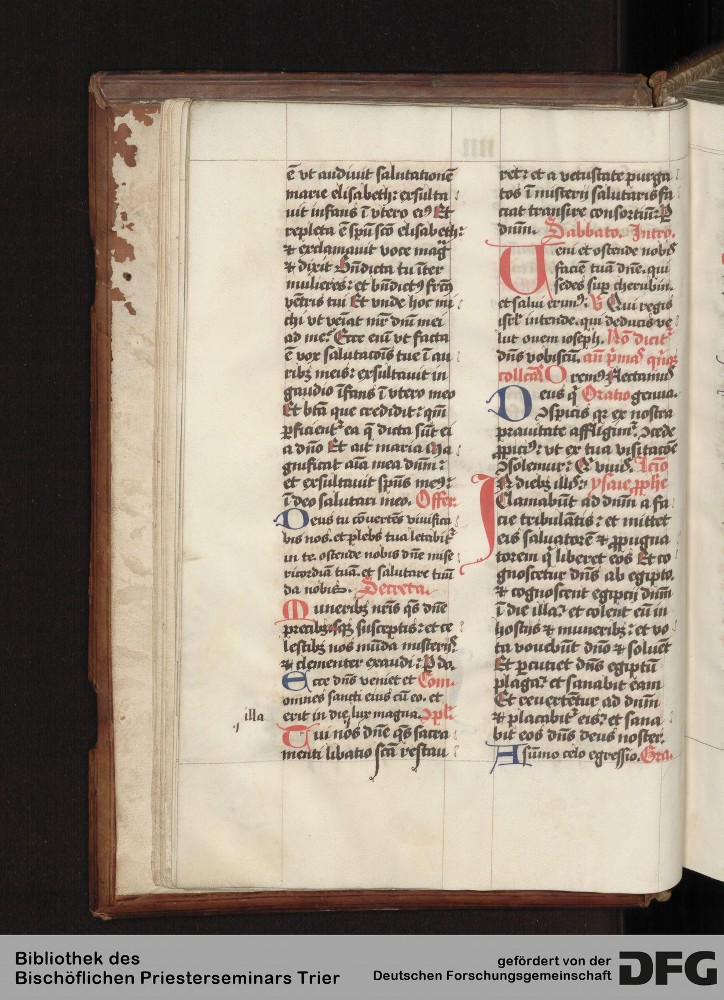 ē vt audiuit salutationē
marie elisabeth: exsulta
uit infans ī vtero eiꝰ Et
repleta ē spū scō elisabeth:
⁊ exclamauit voce mag̃
⁊ dixit Bn̄dicta tu īter
mulieres: et bn̄dictꝰ fruc
vētris tui Et vnde hoc mi
chi vt veīat mr̄ dnī mei
ad me? Ecce em̄ vt facta
ē vox salutacōis tue ī au
ribꝫ meis: exsultauit in
gaudio īfans ī vtero meo
Et btā que credidit: qm̄
ꝑficient᷑ ea q̄ dicta sūt ei
a dn̄o Et ait maria Ma
gnificat aīa mea dnm̄:
et exsultauit spūs meꝰ:
ī deo salutari meo. Offer.
Deus tu cōuertēs viuifica
bis nos. et plebs tua letabit᷑
in te. ostende nobis dn̄e mise
ricordiā tuā. et salutare tuū
da nobis. Secreta.
Muneribꝫ nr̄is q̄s dn̄e
precibꝫqꝫ susceptis: et ce
lestibꝫ nos mūda misterijs
⁊ clementer exaudi: P do.
Ecce dn̄s veniet et Com.
omnes sancti eius cū eo. et
erit in die lux magna. Ꝯpl.
illa
Tui nos dn̄e q̄s sacra
menti libatio scā restau
ret: et a vetustate purga
tos ī misterij salutaris fa
ciat transire consortiū: P
dnm̄. Sabbato. Intro.
Veni et ostende nobis
faciē tuā dn̄e. qui
sedes sup cherubin.
et salui erimꝰ: V Qui regis
isrl̄ intende. qui deducis ve
lut ouem ioseph. Nō dicit᷑
dn̄s vobiscū. an̄ pͥmas qͥnqꝫ
collcās Oremꝰ Flectamus
Deus qͥ Oratio genua.
ꝯspicis qꝛ ex nostra
prauitate affligim᷑. ꝯcede
ꝓpicꝰ: vt ex tua visitacōe
ꝯsolemur: Qͥ viuis. Lcīo
In diebꝫ illis: ysaie ꝓphe
Clamabūt ad dnm̄ a fa
cie tribulātis: et mittet
eis saluatorē ⁊ ꝓpugna
torem qͥ liberet eos Et co
gnoscetur dn̄s ab egipto.
⁊ cognoscent egiptij dnm̄
ī die illa: et colent eū in
hostijs ⁊ muneribꝫ: et vo
ta vouebūt dn̄o ⁊ soluēt
Et ꝑcutiet dn̄s egiptū
plaga: et sanabit eam
Et reuertētur ad dnm̄
⁊ placabit᷑ eis: et sana
bit eos dn̄s deus noster.
A sūmo celo egressio. Gra.
Bibliothek des
Bischöflichen Priesterseminars Trier
gefördert von der
Deutschen Forschungsgemeinschaft
DFG